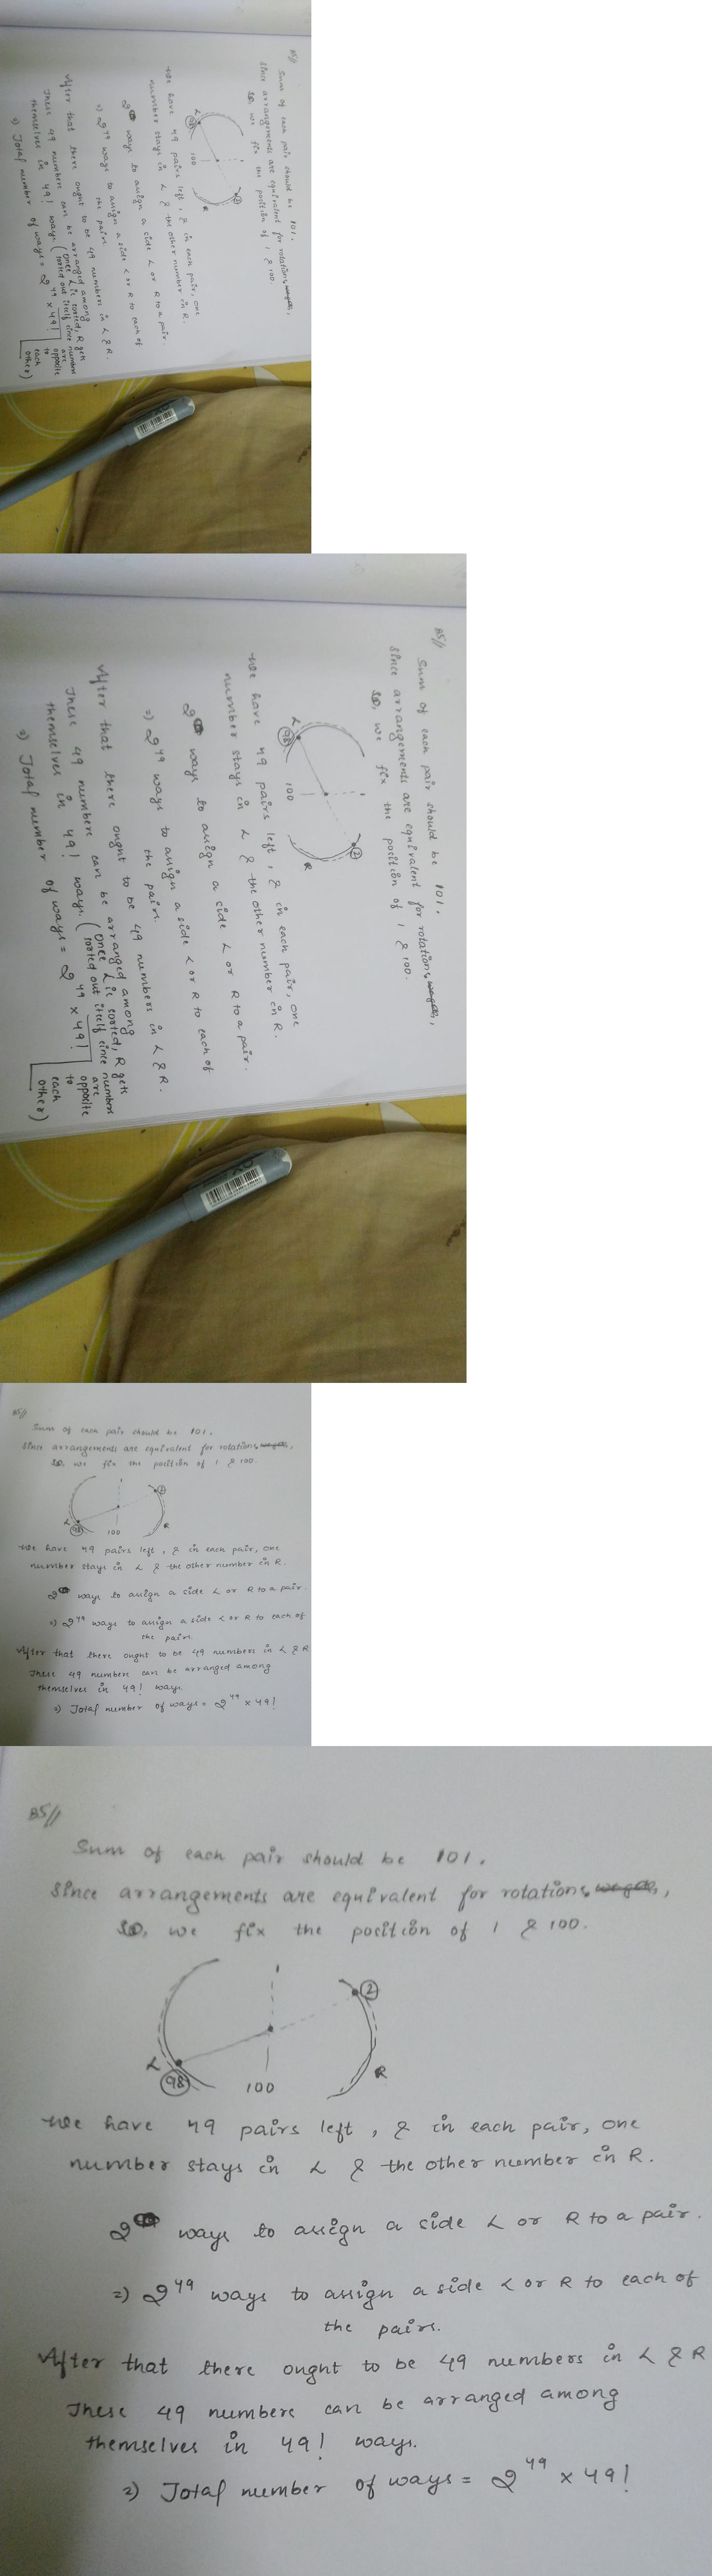 B5//
Sum of each pair should be 101.
Since arrangements are equivalent for rotations,
SO, we fix the position of 1 & 100.
1
2
L
98
R
100
We have 49 pairs left, & in each pair, one
number stays in L & the other number in R.
2 ways to assign a side L or R to a pair.
=) 2^49 ways to assign a side L or R to each of
the pairs.
After that there ought to be 49 numbers in L & R.
These 49 numbers can be arranged among
themselves in 49! ways. (once L is sorted, R gets
sorted out itself since numbers
are
opposite
to
each
other)
=) Total number of ways = 2^49 x 49!
B5//
Sum of each pair should be 101.
Since arrangements are equivalent for rotations,
SO, we fix the position of 1 & 100.
1
2
L
98
R
100
We have 49 pairs left, & in each pair, one
number stays in L & the other number in R.
2 ways to assign a side L or R to a pair.
=) 2^49 ways to assign a side L or R to each of
the pairs.
After that there ought to be 49 numbers in L & R.
These 49 numbers can be arranged among
themselves in 49! ways. (once L is sorted, R gets
sorted out itself since numbers
are
opposite
to
each
other)
=) Total number of ways = 2^49 x 49!
B5//
Sum of each pair should be 101.
Since arrangements are equivalent for rotations,
SO, we fix the position of 1 & 100.
1
2
L
98
R
100
We have 49 pairs left, & in each pair, one
number stays in L & the other number in R.
2 ways to assign a side L or R to a pair.
=) 2^49 ways to assign a side L or R to each of
the pairs.
After that there ought to be 49 numbers in L & R
These 49 numbers can be arranged among
themselves in 49! ways.
=) Total number of ways = 2^49 x 49!
B5//
Sum of each pair should be 101.
Since arrangements are equivalent for rotations,
SO, we fix the position of 1 & 100.
1
2
L
98
R
100
We have 49 pairs left, & in each pair, one
number stays in L & the other number in R.
2 ways to assign a side L or R to a pair.
=) 2^49 ways to assign a side L or R to each of
the pairs.
After that there ought to be 49 numbers in L & R
These 49 numbers can be arranged among
themselves in 49! ways.
=) Total number of ways = 2^49 x 49!